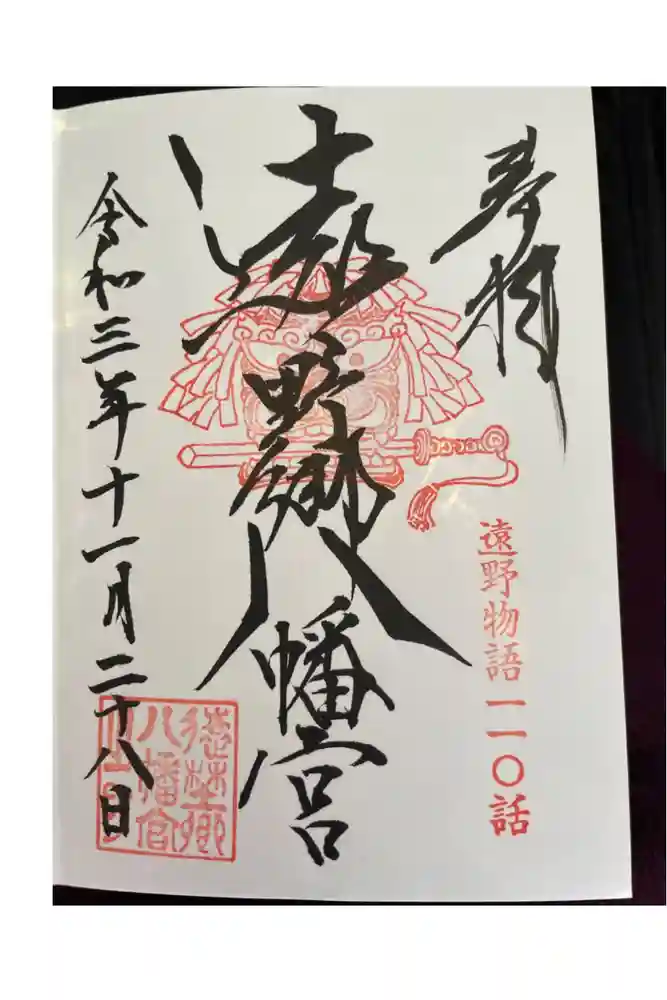 奉拝
遠野物語一一〇話
遠野郷八幡宮
令和三年十一月二十八日
遠野郷
八幡宮